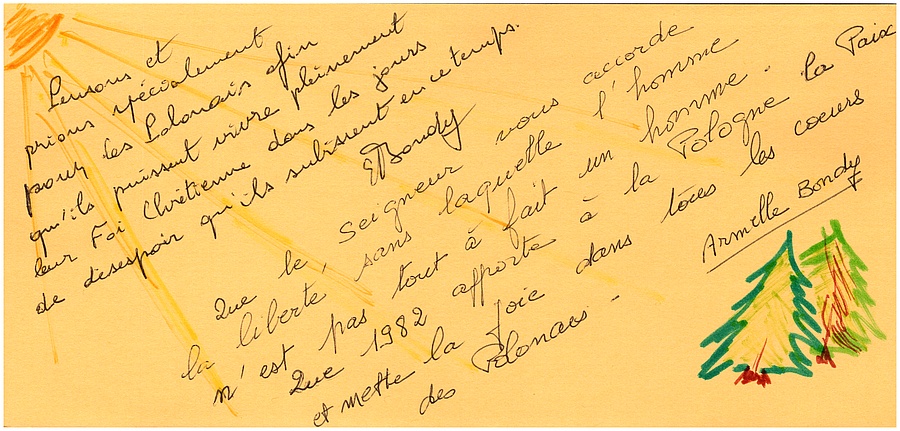 Pensons et
prions spécialement
pour les Polonais afin
qu'ils puissent vivre pleinement
leur Foi Chrétienne dans les jours
de désespoir qu'ils subissent en ce temps.
EBondy
Que le Seigneur vous accorde
la liberté, sans laquelle l'homme
n'est pas tout à fait un homme.
Que 1982 apporte à la Pologne la Paix
et mette la joie dans tous les coeurs
des Polonais -
Armelle Bondy